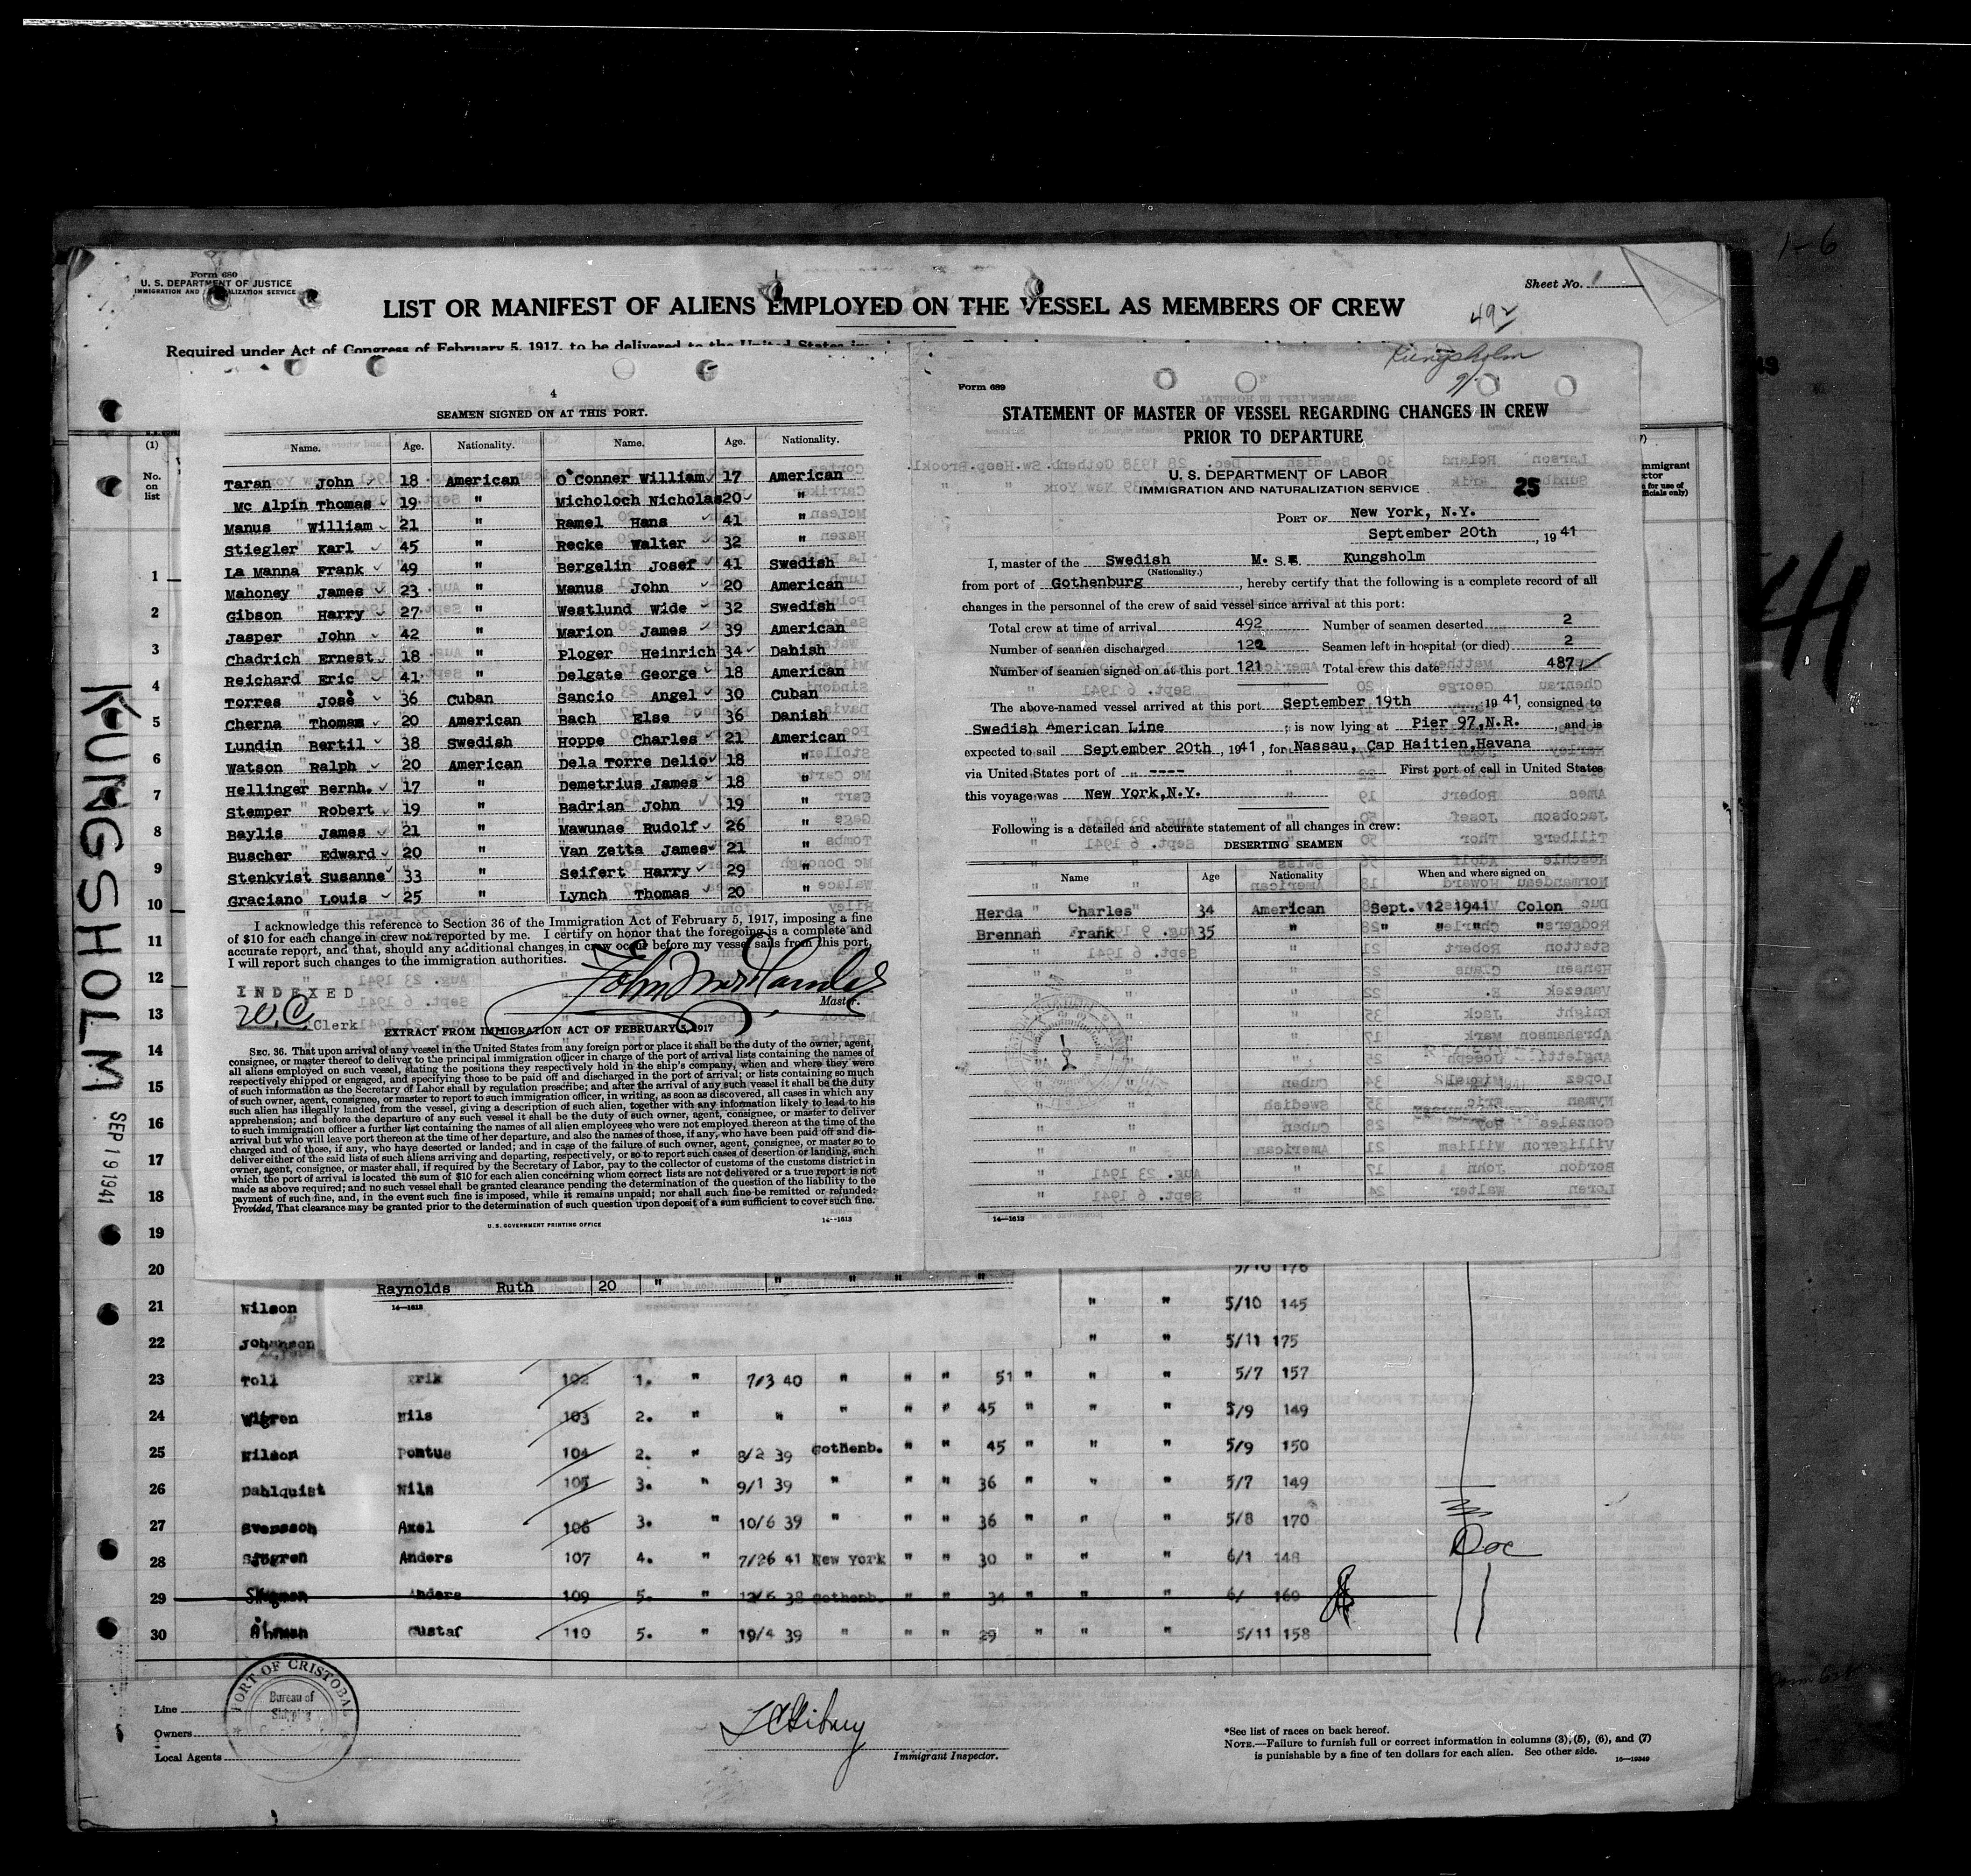 Form 689
U. S. DEPARTMENT OF JUSTICE
IMMIGRATION AND NATURALIZATION SERVICE
Sheet No.
LIST OR MANIFEST OF ALIENS EMPLOYED ON THE VESSEL AS MEMBERS OF CREW
492
Required under Act of Congress of February 5, 1917, to be delivered to the United States
1-6
KUNGSHOLM
SEP 19 1941
4
SEAMEN SIGNED ON AT THIS PORT.
Name. Age. Nationality. Name. Age. Nationality.
Taran John 18 American O'Conner William 17 American
Mc Alpin Thomas 19 " Micholoch Nicholas 20 "
Manus William 21 " Ramel Hans 41 "
Stiegler Karl 45 " Recke Walter 32 "
La Manna Frank 49 " Bergelin Josef 41 Swedish
Mahoney James 23 " Manus John 20 American
Gibson Harry 27 " Westlund Wide 32 Swedish
Jasper John 42 " Marion James 39 American
Chadrich Ernest 18 " Ploger Heinrich 34 Danish
Reichard Eric 41 " Delgate George 18 American
Torres José 36 Cuban Sancio Angel 30 Cuban
Cherna Thomas 20 American Bach Else 36 Danish
Lundin Bertil 38 Swedish Hoppe Charles 21 American
Watson Ralph 20 American Dela Torre Delio 18 "
Hellinger Bernh. 17 " Demetrius James 18 "
Stemper Robert 19 " Badrian John 19 "
Baylis James 21 " Mawunae Rudolf 26 "
Buscher Edward 20 " Van Zetta James 21 "
Stenkvist Susanne 33 " Seifert Harry 29 "
Graciano Louis 25 " Lynch Thomas 20 "
I acknowledge this reference to Section 36 of the Immigration Act of February 5, 1917, imposing a fine
of $10 for each change in crew not reported by me. I certify on honor that the foregoing is a complete and
accurate report, and that, should any additional changes in crew occur before my vessel sails from this port,
I will report such changes to the immigration authorities.
INDEXED
Clerk
Master.
EXTRACT FROM IMMIGRATION ACT OF FEBRUARY 5, 1917
SEC. 36. That upon arrival of any vessel in the United States from any foreign port or place it shall be the duty of the owner, agent,
consignee, or master thereof to deliver to the principal immigration officer in charge of the port of arrival lists containing the names of
all aliens employed on such vessel, stating the positions they respectively hold in the ship's company, when and where they were
respectively shipped or engaged, and specifying those to be paid off and discharged in the port of arrival; or lists containing so much
of such information as the Secretary of Labor shall by regulation prescribe; and after the arrival of any such vessel it shall be the duty
of such owner, agent, consignee, or master to report to such immigration officer, in writing, as soon as discovered, all cases in which any
such alien has illegally landed from the vessel, giving a description of such alien, together with any information likely to lead to his
apprehension; and before the departure of any such vessel it shall be the duty of such owner, agent, consignee, or master to deliver
to such immigration officer a further list containing the names of all alien employees who were not employed thereon at the time of the
arrival but who will leave port thereon at the time of her departure, and also the names of those, if any, who have been paid off and dis-
charged and of those, if any, who have deserted or landed; and in case of the failure of such owner, agent, consignee, or master so to
deliver either of the said lists of such aliens arriving and departing, respectively, or so to report such cases of desertion or landing, such
owner, agent, consignee, or master shall, if required by the Secretary of Labor, pay to the collector of customs of the customs district in
which the port of arrival is located the sum of $10 for each alien concerning whom correct lists are not delivered or a true report is not
made as above required; and no such vessel shall be granted clearance pending the determination of the question of the liability to the
payment of such fine, and, in the event such fine is imposed, while it remains unpaid; nor shall such fine be remitted or refunded:
Provided, That clearance may be granted prior to the determination of such question upon deposit of a sum sufficient to cover such fine.
U. S. GOVERNMENT PRINTING OFFICE 14—1613
Kungsholm
Form 689
STATEMENT OF MASTER OF VESSEL REGARDING CHANGES IN CREW
PRIOR TO DEPARTURE
U. S. DEPARTMENT OF LABOR
IMMIGRATION AND NATURALIZATION SERVICE 25
PORT OF New York, N.Y.
September 20th, 1941
I, master of the Swedish M. S. Kungsholm
(Nationality.)
from port of Gothenburg, hereby certify that the following is a complete record of all
changes in the personnel of the crew of said vessel since arrival at this port:
Total crew at time of arrival 492 Number of seamen deserted 2
Number of seamen discharged 122 Seamen left in hospital (or died) 2
Number of seamen signed on at this port 121 Total crew this date 487
The above-named vessel arrived at this port September 19th, 1941, consigned to
Swedish American Line ; is now lying at Pier 97, N.R. , and is
expected to sail September 20th, 1941, for Nassau, Cap Haitien, Havana
via United States port of " ---- First port of call in United States
this voyage was New York, N.Y.
Following is a detailed and accurate statement of all changes in crew:
DESERTING SEAMEN
Name Age Nationality When and where signed on
Herda Charles 34 American Sept. 12 1941 Colon
Brennan Frank 35 " " " " "
14—1613
(1)
No.
on
list
1
2
3
4
5
6
7
8
9
10
11
12
13
14
15
16
17
18
19
20
Raynolds Ruth 20 " " " " "
14—1613
21 Nilson " " 5/10 145
22 Johanson " " 5/11 175
23 Toll Erik 102 1. " 7/3 40 " " " 51 " " " 5/7 157
24 Wigren Nils 103 2. " " " " " 45 " " " 5/9 149
25 Nilson Pontus 104 2. " 8/2 39 Gothenb. " " 45 " " " 5/9 150
26 Dahlquist Nils 105 3. " 9/1 39 " " " 36 " " " 5/7 149
27 Svensson Axel 106 3. " 10/6 39 " " " 36 " " " 5/8 170
28 Sjögren Anders 107 4. " 7/26 41 New York " " 30 " " " 6/1 148
29 Anders 109 5. " 12/6 38 Gothenb. " " 34 " " " 6/ 160
30 Åhman Gustaf 110 5. " 19/4 39 " " " 29 " " " 5/11 158
PORT OF CRISTOBAL
Bureau of
Shipping
Line
Owners
Local Agents
Immigrant Inspector.
*See list of races on back hereof.
NOTE.—Failure to furnish full or correct information in columns (3), (5), (6), and (7)
is punishable by a fine of ten dollars for each alien. See other side. 16—19349